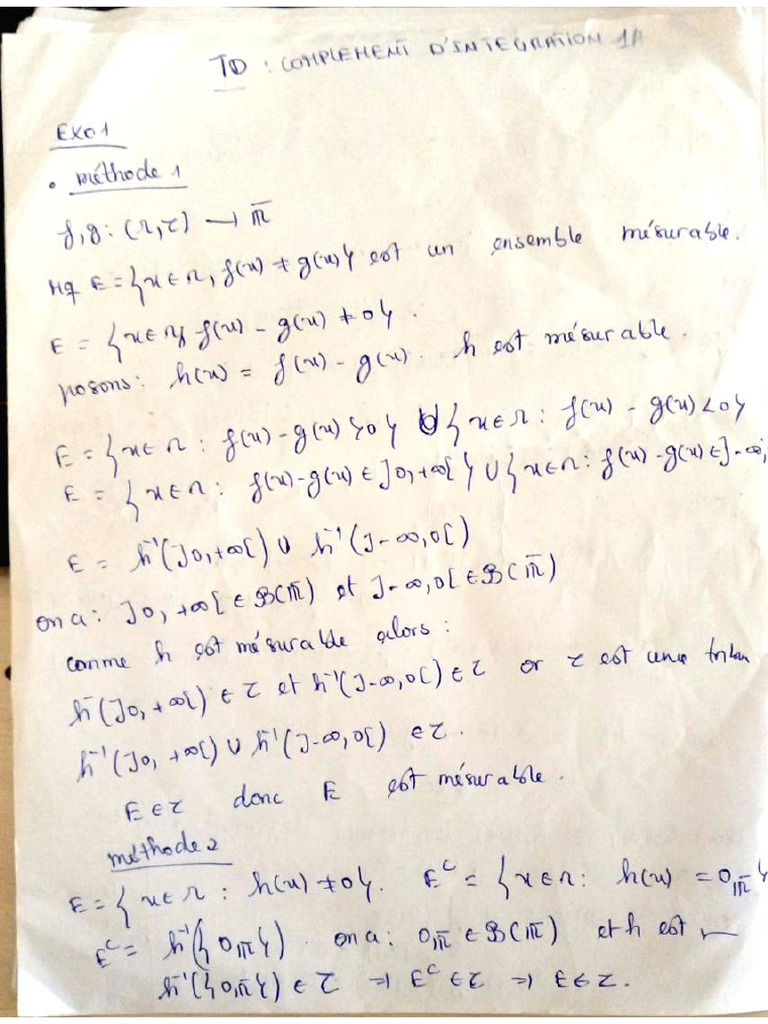 TD : COMPLEMENT D'INTEGRATION 1A
EXO1
• méthode 1
f,g : (Ω,τ) → ℝ̅
Mq E = {x ∈ Ω, f(x) ≠ g(x)} est un ensemble mésurable.
E = {x ∈ Ω, f(x) - g(x) ≠ 0}.
posons : h(x) = f(x) - g(x). h est mésurable.
E = {x ∈ Ω : f(x) - g(x) > 0} ∪ {x ∈ Ω : f(x) - g(x) < 0}
E = {x ∈ Ω : f(x) - g(x) ∈ ]0,+∞[} ∪ {x ∈ Ω : f(x) - g(x) ∈ ]-∞,
E = h⁻¹(]0,+∞[) ∪ h⁻¹(]-∞,0[)
on a : ]0,+∞[ ∈ B(ℝ̅) et ]-∞,0[ ∈ B(ℝ̅)
comme h est mésurable alors :
h⁻¹(]0,+∞[) ∈ τ et h⁻¹(]-∞,0[) ∈ τ or τ est une tribu
h⁻¹(]0,+∞[) ∪ h⁻¹(]-∞,0[) ∈ τ.
E ∈ τ donc E est mésurable.
méthode 2
E = {x ∈ Ω : h(x) ≠ 0}. Eᶜ = {x ∈ Ω : h(x) = 0_ℝ̅}
Eᶜ = h⁻¹({0_ℝ̅}) on a : 0_ℝ̅ ∈ B(ℝ̅) et h est
h⁻¹({0_ℝ̅}) ∈ τ ⇒ Eᶜ ∈ τ ⇒ E ∈ τ.